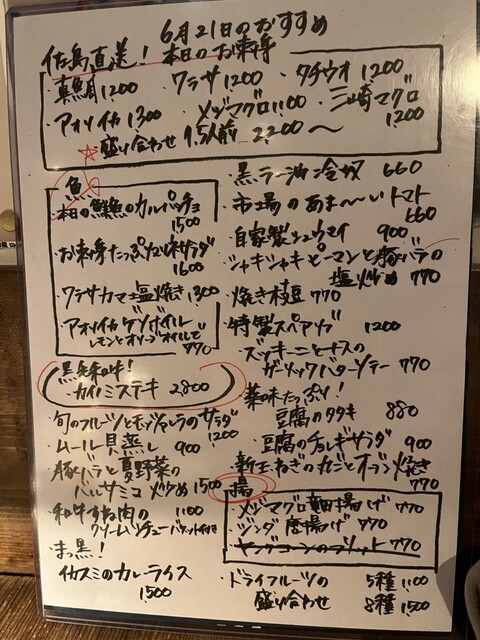 6月21日のおすすめ
佐島直送！ 本日のお刺身
・真鯛 1200 ・ワラサ 1200 ・タチウオ 1200
・アオリイカ 1300 ・メジマグロ 1100 ・三崎マグロ 1200
☆盛り合わせ 1.5人前 2200〜
魚
・本日の鮮魚のカルパッチョ
1500
・お刺身たっぷり サラダ
1600
・ワラサカマ塩焼き 1300
・アオリイカゲソボイル
レモンとオリーブオイルで
770
黒毛和牛！
・カイノミステキ 2800
・旬のフルーツとモッツァレラのサラダ
1200
・ムール貝蒸し 900
・豚バラと夏野菜の
バルサミコ炒め 1500
・和牛すね肉の 1100
クリームシチュー バケット付き
・まっ黒！
イカスミのカレーライス
1500
・黒ラー油冷奴 660
・市場のあま〜いトマト
660
・自家製シュウマイ 900
・シャキシャキピーマンと豚バラの
塩炒め 770
・焼き枝豆 770
・特製スペアリブ 1200
・ズッキーニとナスの
ガーリックバターソテー 770
・薬味たっぷり！
豆腐のタタキ 880
・豆腐のチョレギサラダ 900
・新玉ねぎの丸ごとオーブン焼き
770
揚
・メジマグロ竜田揚げ 770
・ジンダ唐揚げ 770
・ヤングコーンのフリット 770
・ドライフルーツの 5種 1100
盛り合わせ 8種 1500